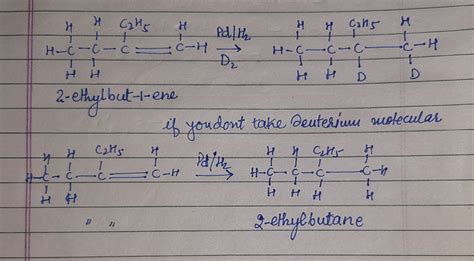 H H C₂H₅ H
H-C-C-C=C-H Pd/H₂ D₂ H-C-C-C-C-H
H H H H D D
2-ethylbut-1-ene
if you dont take Deuterium molecular
H H C₂H₅ H
H-C-C-C=C-H Pd/H₂ H-C-C-C-C-H
H H H H H H
" " 2-ethylbutane